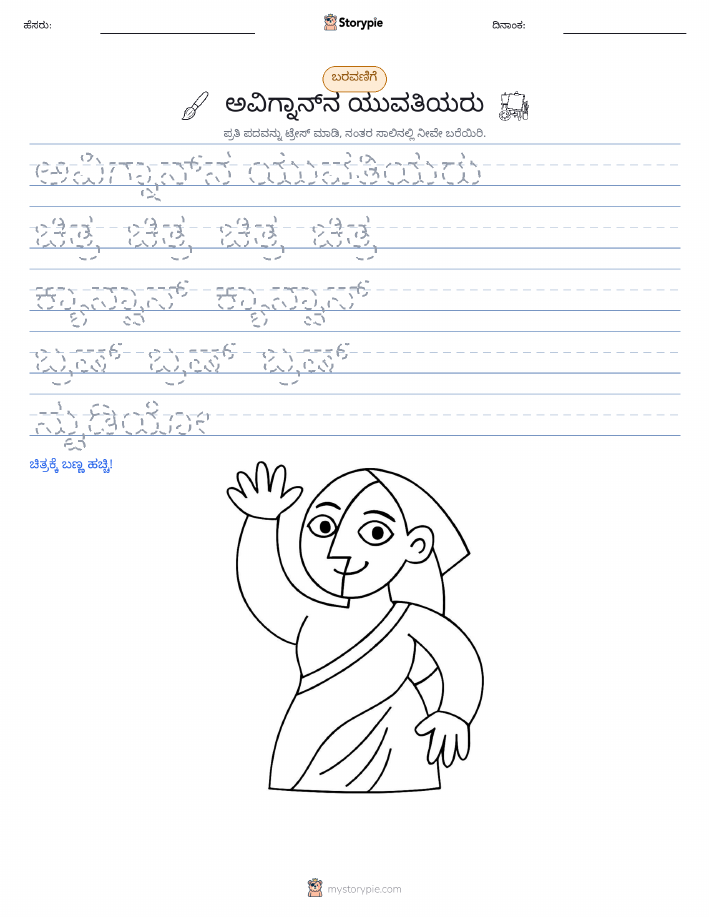 ಹೆಸರು:
Storypie
ದಿನಾಂಕ:
ಬರವಣಿಗೆ
ಅವಿಗ್ನಾನ್‌ನ ಯುವತಿಯರು
ಪ್ರತಿ ಪದವನ್ನು ಟ್ರೇಸ್ ಮಾಡಿ, ನಂತರ ಸಾಲಿನಲ್ಲಿ ನೀವೇ ಬರೆಯಿರಿ.
ಅವಿಗ್ನಾನ್‌ನ ಯುವತಿಯರು
ಚಿತ್ರ ಚಿತ್ರ ಚಿತ್ರ ಚಿತ್ರ
ಕ್ಯಾನ್ವಾಸ್ ಕ್ಯಾನ್ವಾಸ್
ಬ್ರಷ್ ಬ್ರಷ್ ಬ್ರಷ್
ಸ್ಟುಡಿಯೋ
ಚಿತ್ರಕ್ಕೆ ಬಣ್ಣ ಹಚ್ಚಿ!
mystorypie.com